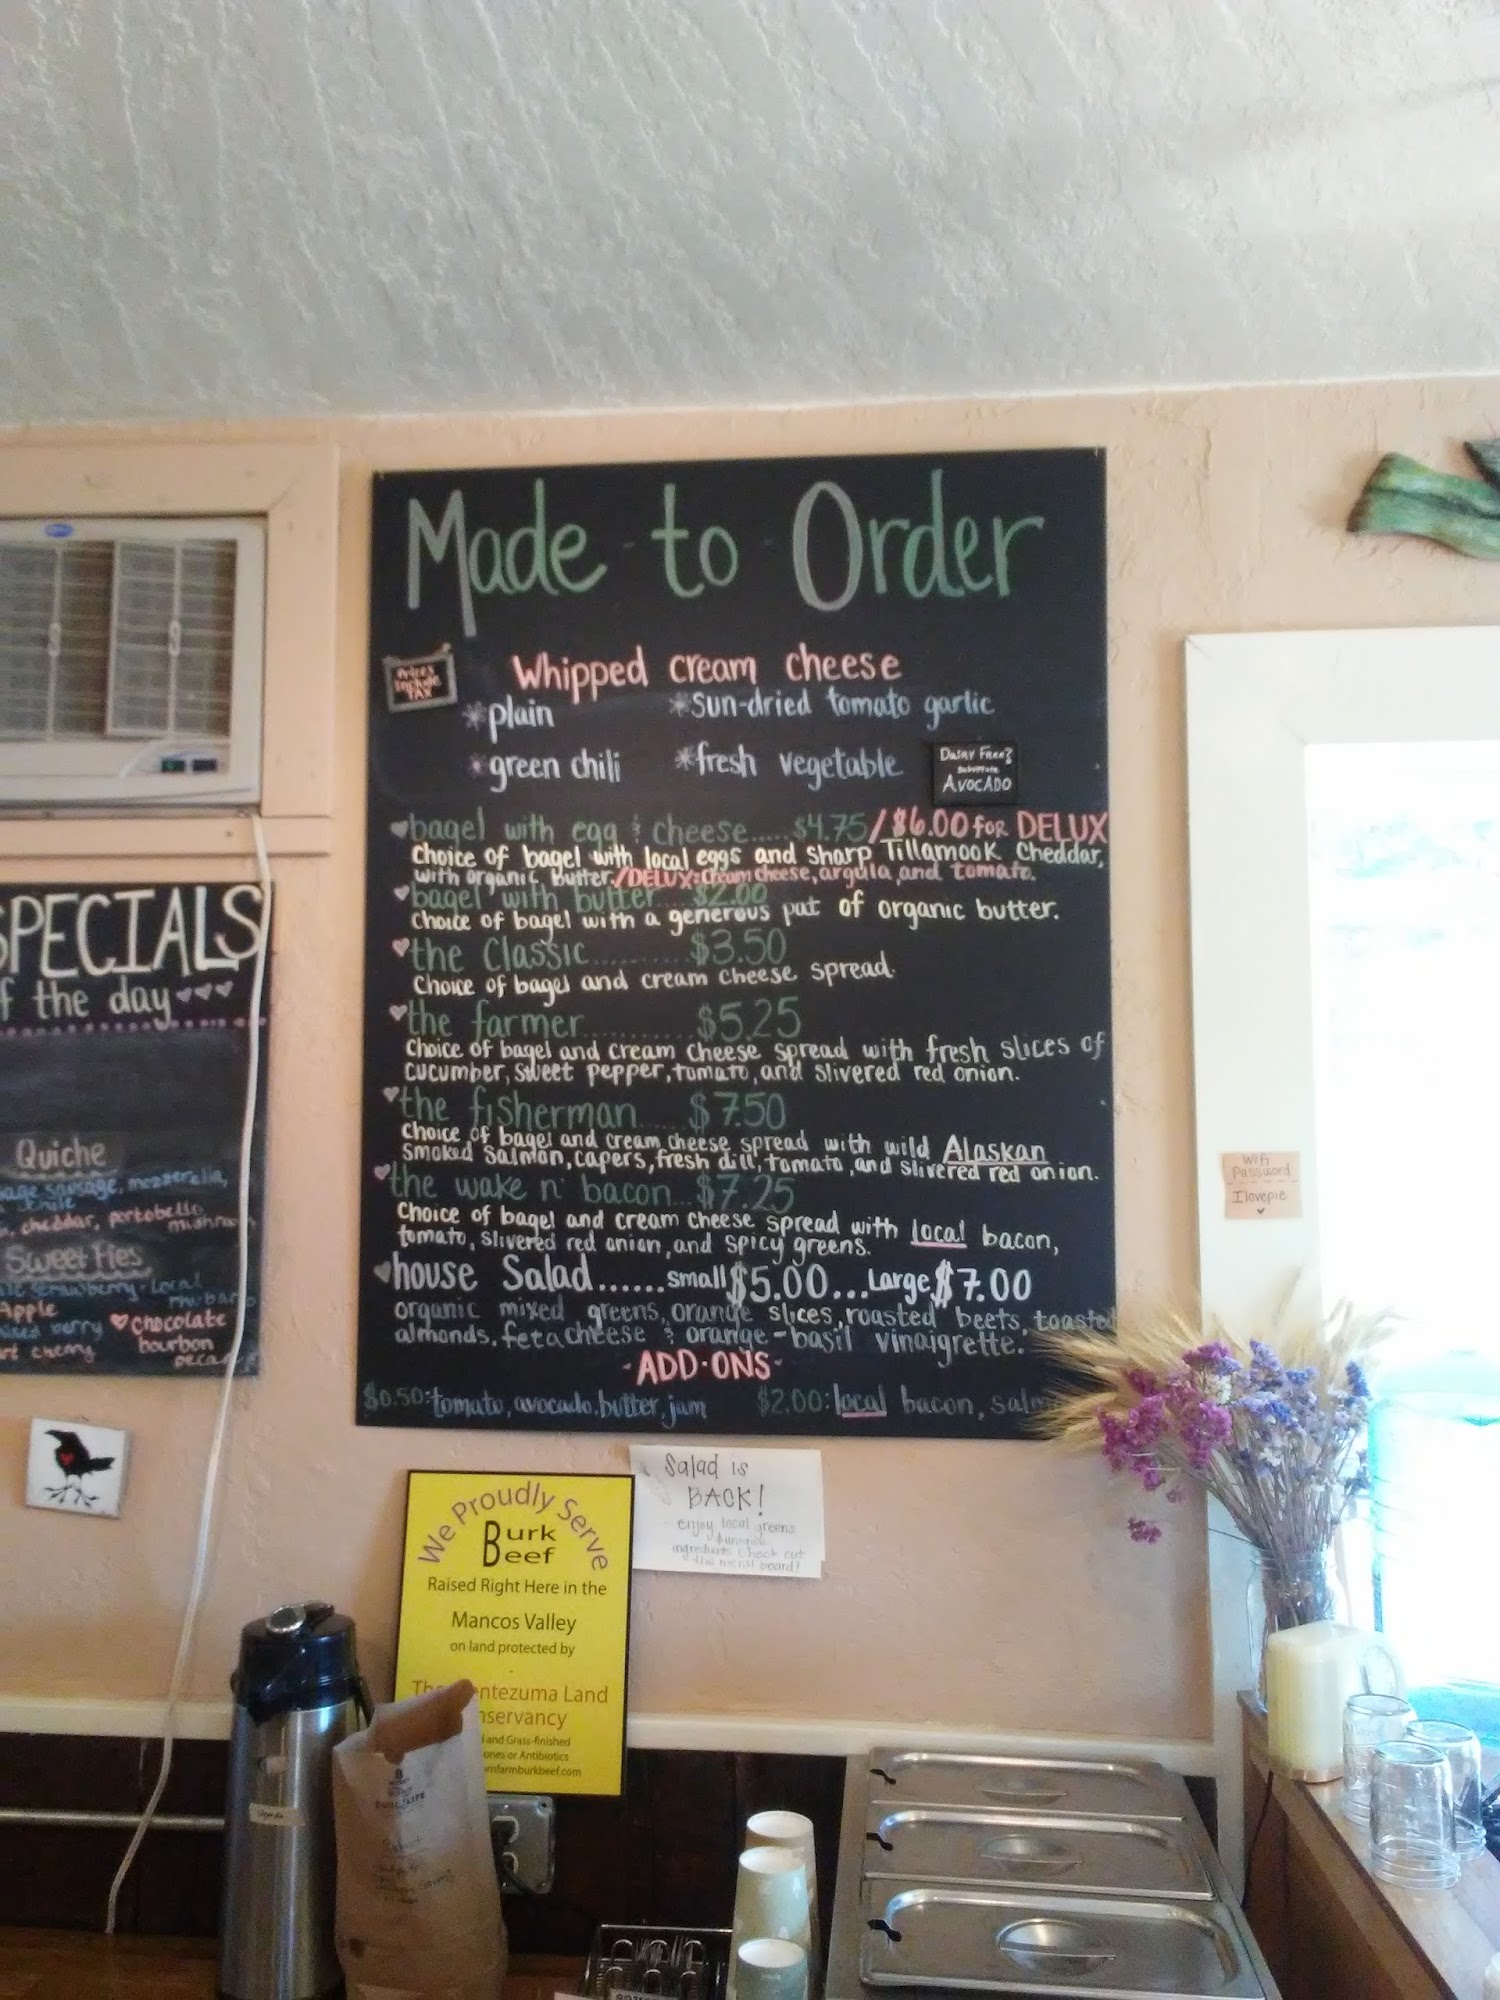 Made to Order
Prices
Include
TAX
Whipped cream cheese
*plain
*Sun-dried tomato garlic
*green chili
*fresh vegetable
Dairy Free?
Substitute
AVOCADO
bagel with egg & cheese.....$4.75/$6.00 for DELUX
Choice of bagel with local eggs and Sharp Tillamook Cheddar,
with organic butter./DELUX: Cream cheese, argula, and tomato.
bagel with butter....$2.00
Choice of bagel with a generous pat of organic butter.
the Classic..........$3.50
Choice of bagel and cream cheese spread.
the farmer..........$5.25
Choice of bagel and cream cheese spread with fresh slices of
cucumber, sweet pepper, tomato, and slivered red onion.
the fisherman.....$7.50
Choice of bagel and cream cheese spread with wild Alaskan
smoked salmon, capers, fresh dill, tomato, and slivered red onion.
the wake n' bacon...$7.25
Choice of bagel and cream cheese spread with local bacon,
tomato, slivered red onion, and spicy greens.
house Salad......small $5.00...Large $7.00
organic mixed greens, orange slices, roasted beets, toasted
almonds, feta cheese & orange-basil vinaigrette.
-ADD-ONS-
$0.50: tomato, avocado, butter, jam
$2.00: local bacon, salm
SPECIALS
f the day
Quiche
age sausage, mozzerella,
cheddar, portobello
mushroom
Sweet Pies
strawberry - Local
rhubarb
Apple
berry
Chocolate
bourbon
pecan
cherry
Wifi
Password
Ilovepie
Salad is
BACK!
enjoy local greens
& unique
ingredients check out
the menu board!
We Proudly Serve
Burk
Beef
Raised Right Here in the
Mancos Valley
on land protected by
The ntezuma Land
nservancy
l and Grass-finished
ones or Antibiotics
rnfarmburkbeef.com